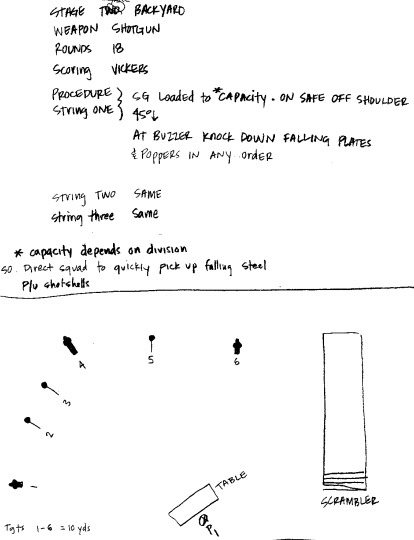 STAGE TWO BACKYARD
WEAPON SHOTGUN
ROUNDS 18
Scoring VICKERS
PROCEDURE } SG Loaded to *CAPACITY. ON SAFE OFF SHOULDER
String ONE } 45°↓
AT BUZZER KNOCK DOWN FALLING PLATES
& POPPERS IN ANY ORDER
String TWO SAME
String three Same
* capacity depends on division
SO. Direct squad to quickly pick up falling steel
P/U shotshells
4
5
6
3
2
1
TABLE
P1
SCRAMBLER
Tgts 1-6 = 10 yds